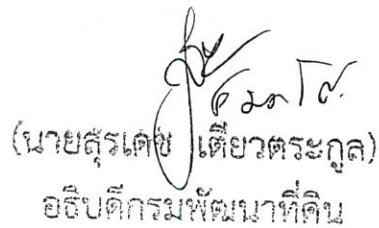 (นายสุรเดช เตียวตระกูล)
อธิบดีกรมพัฒนาที่ดิน